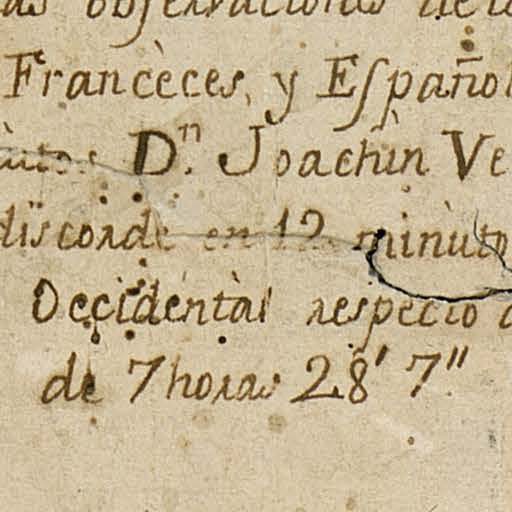 as observaciones de
Francèces, y Eſpañol
D.n Joachìn Ve
discorde en 12 minùto
Occidéntàl respecto
de 7 horas 28' 7"